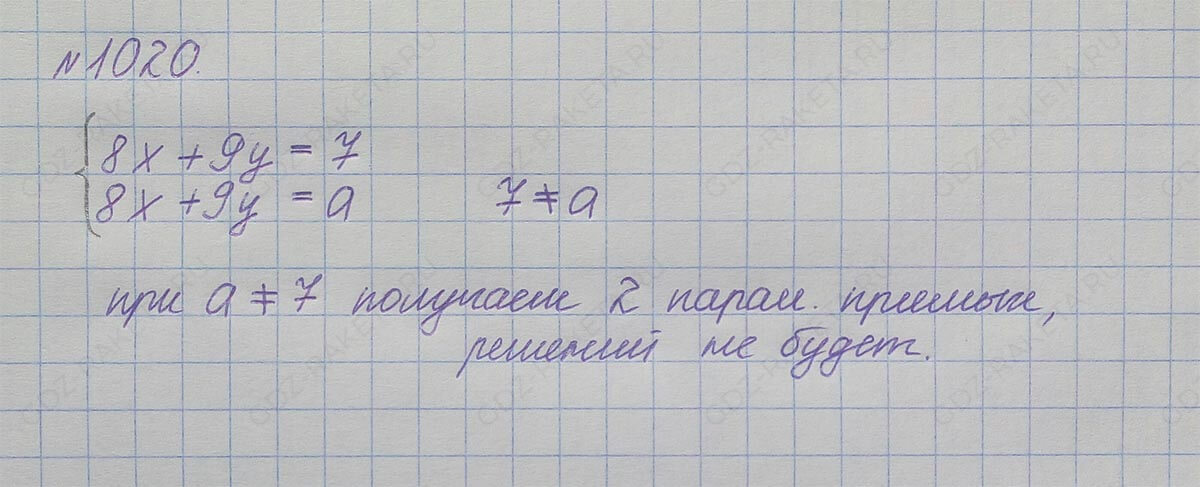 №1020.
8x + 9y = 7
8x + 9y = a 7 ≠ a
при a ≠ 7 получаем 2 парал. прямых,
решений не будет.
GDZ-RAKETA.RU